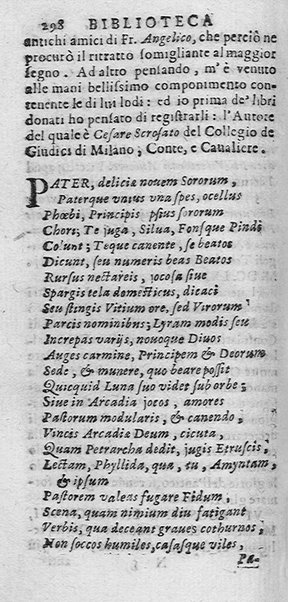 298 BIBLIOTECA
antichi amici di Fr. Angelico, che perciò ne
procurò il ritratto somigliante al maggior
segno. Ad altro pensando, m'è venuto
alle mani bellissimo componimento con-
tenente le di lui lodi: ed io prima de' libri
donati ho pensato di registrarli: l'Autore
del quale è Cesare Scrosato del Collegio de
Giudici di Milano, Conte, e Caualiere.
PATER, deliciæ nouem Sororum,
Paterque vnius vna spes, ocellus
Phœbi, Principis ipsius sororum
Chori; Te juga, Silua, Fonsque Pindi
Colunt; Teque canente, se beatos
Dicunt, seu numeris beas Beatos
Rursus nectareis, jocosa siue
Spargis tela domesticus, dicaci
Seu stingis Vitium ore, sed Virorum
Parcis nominibus; Lyram modis seu
Increpas varijs, nouoque Diuos
Auges carmine, Principem & Deorum
Sede, & munere, quo beare possit
Quicquid Luna suo videt sub orbe;
Siue in Arcadia jocos, amores
Pastorum modularis, & canendo,
Vincis Arcadiæ Deum, cicuta,
Quam Petrarcha dedit, jugis Etruscis,
Lectam, Phyllida, qua, tu, Amyntam,
& ipsum
Pastorem valeas fugare Fidum,
Scena, quam nimium diu fatigant
Verbis, qua deceant graues cothurnos,
Non soccos humiles, casasque viles,
Pa-